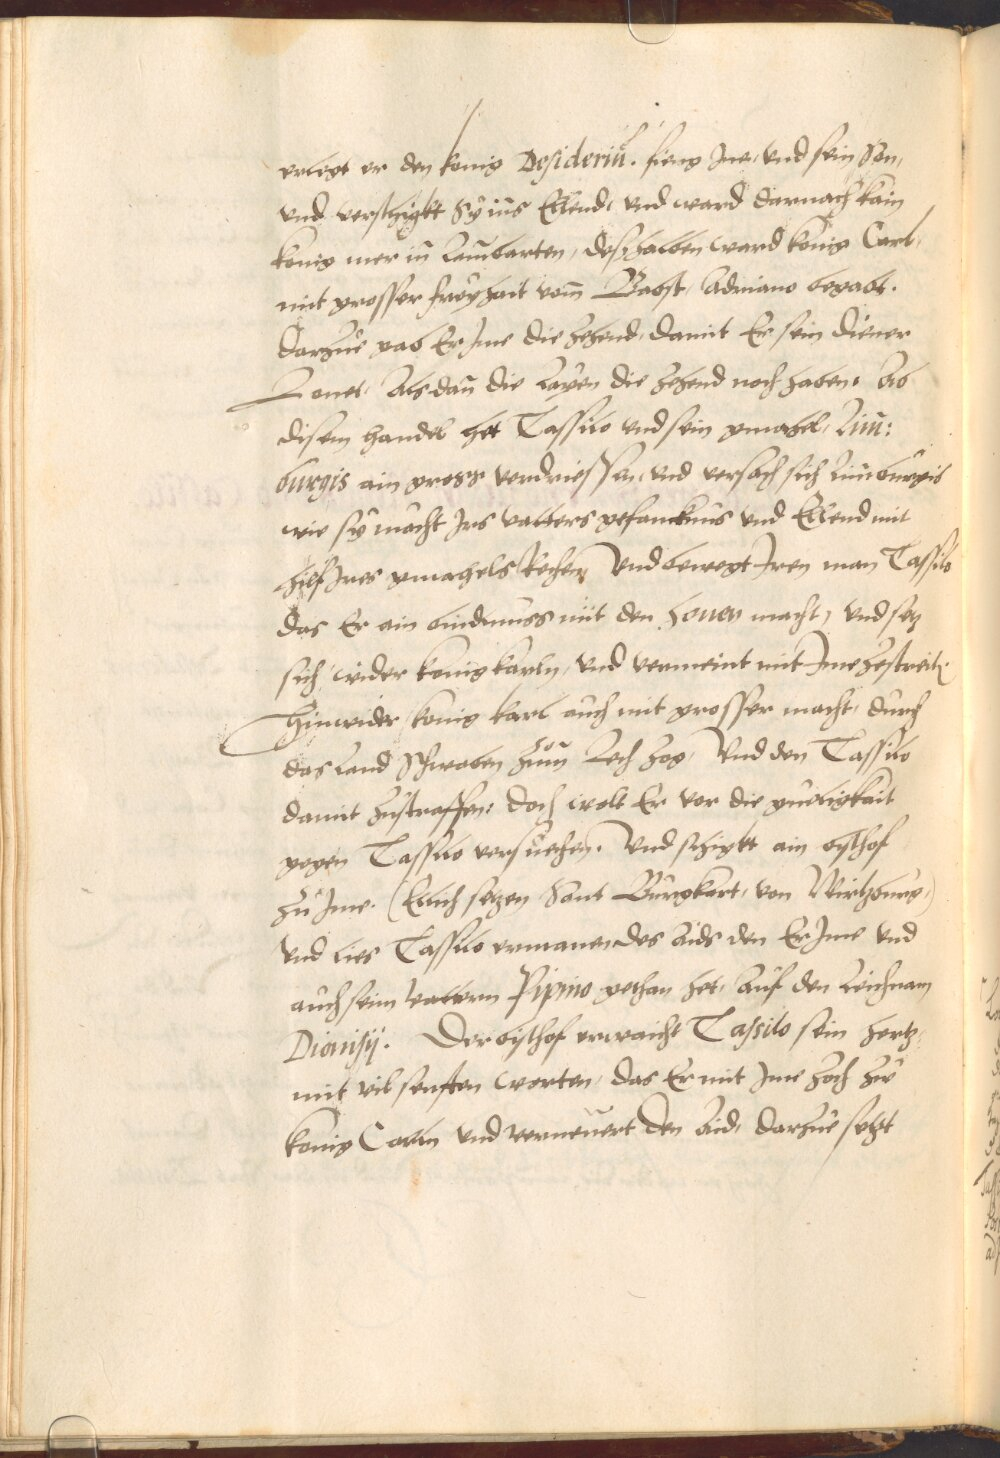 erlegt er den konig Desideriū. fieng Jne, vnd sein Son,
vnd verschigkt Sy ins Ellend, vnd ward darnach kain
konig mer in Lambarten, deshhalben ward konig Carl,
mit grosser freyhait vom Babst, Adriano begabt.
Darzue gab Er Jme die zehend, damit Er sein diener
Lonet, Als dan die Layen die zehend noch haben. Ab
disem handel het Tassilo vnd sein gmahel, Lūi:
burgis ain gross verdriessen, vnd versach sich Luitburgis
wie sy mächt Jrs vatters gefancknus vnd Ellend mit
hilf Jres gmachels Rechen, Vnd bewegt Jren man Tassilo
das Er ain bindtnuss mit den honen macht, vnd setz
sich wider konig karln, vnd vermeint mit Jme zestreitt.
Hinwider konig karl auch mit grosser macht, durch
das land Schwaben zum Lech zog, Vnd den Tassilo
damit zustraffen: doch wolt Er vor die guetigkait
gegen Tassilo versuechen. Vnd schigkt ain bischof
zu Jme. (Etlich setzen Sant Burgkart, von Wirtzburg,)
vnd lies Tassilo ermanen des Aids den Er Jme vnd
auch seim vattern Pipino gethan het, Auf den leichnam
Dionisij. Der bischof erwaicht Tassilo sein hertz,
mit vil senften worten, das Er mit Jme zoch zu
konig Carln vnd verneuert den Aid, darzue setzt